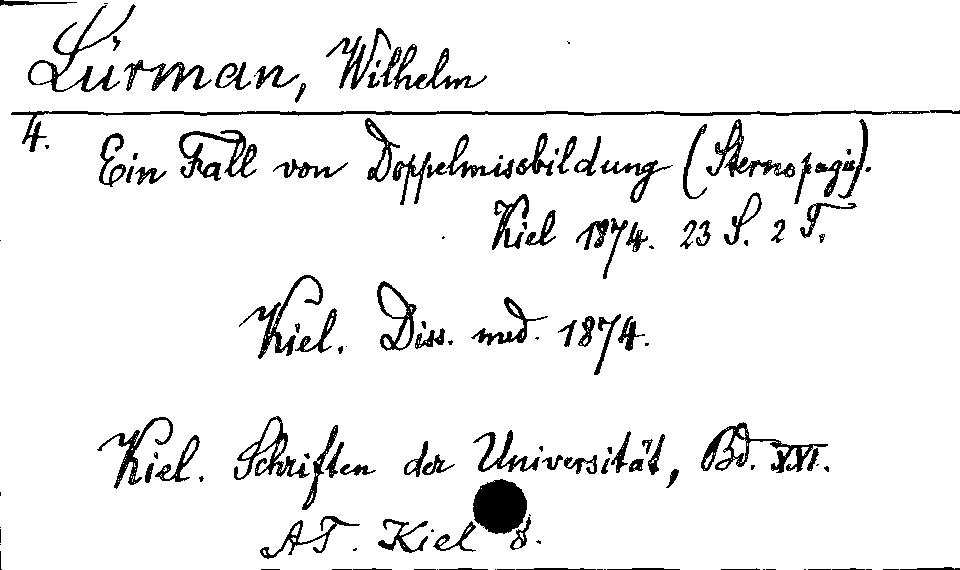 Lürman, Wilhelm
4.
Ein Fall von Doppelmissbildung (Sternopagie).
Kiel 1874. 23 S. 2 T.
Kiel. Diss. med. 1874.
Kiel. Schriften der Universität, Bd. XXI.
AT. Kiel 8.